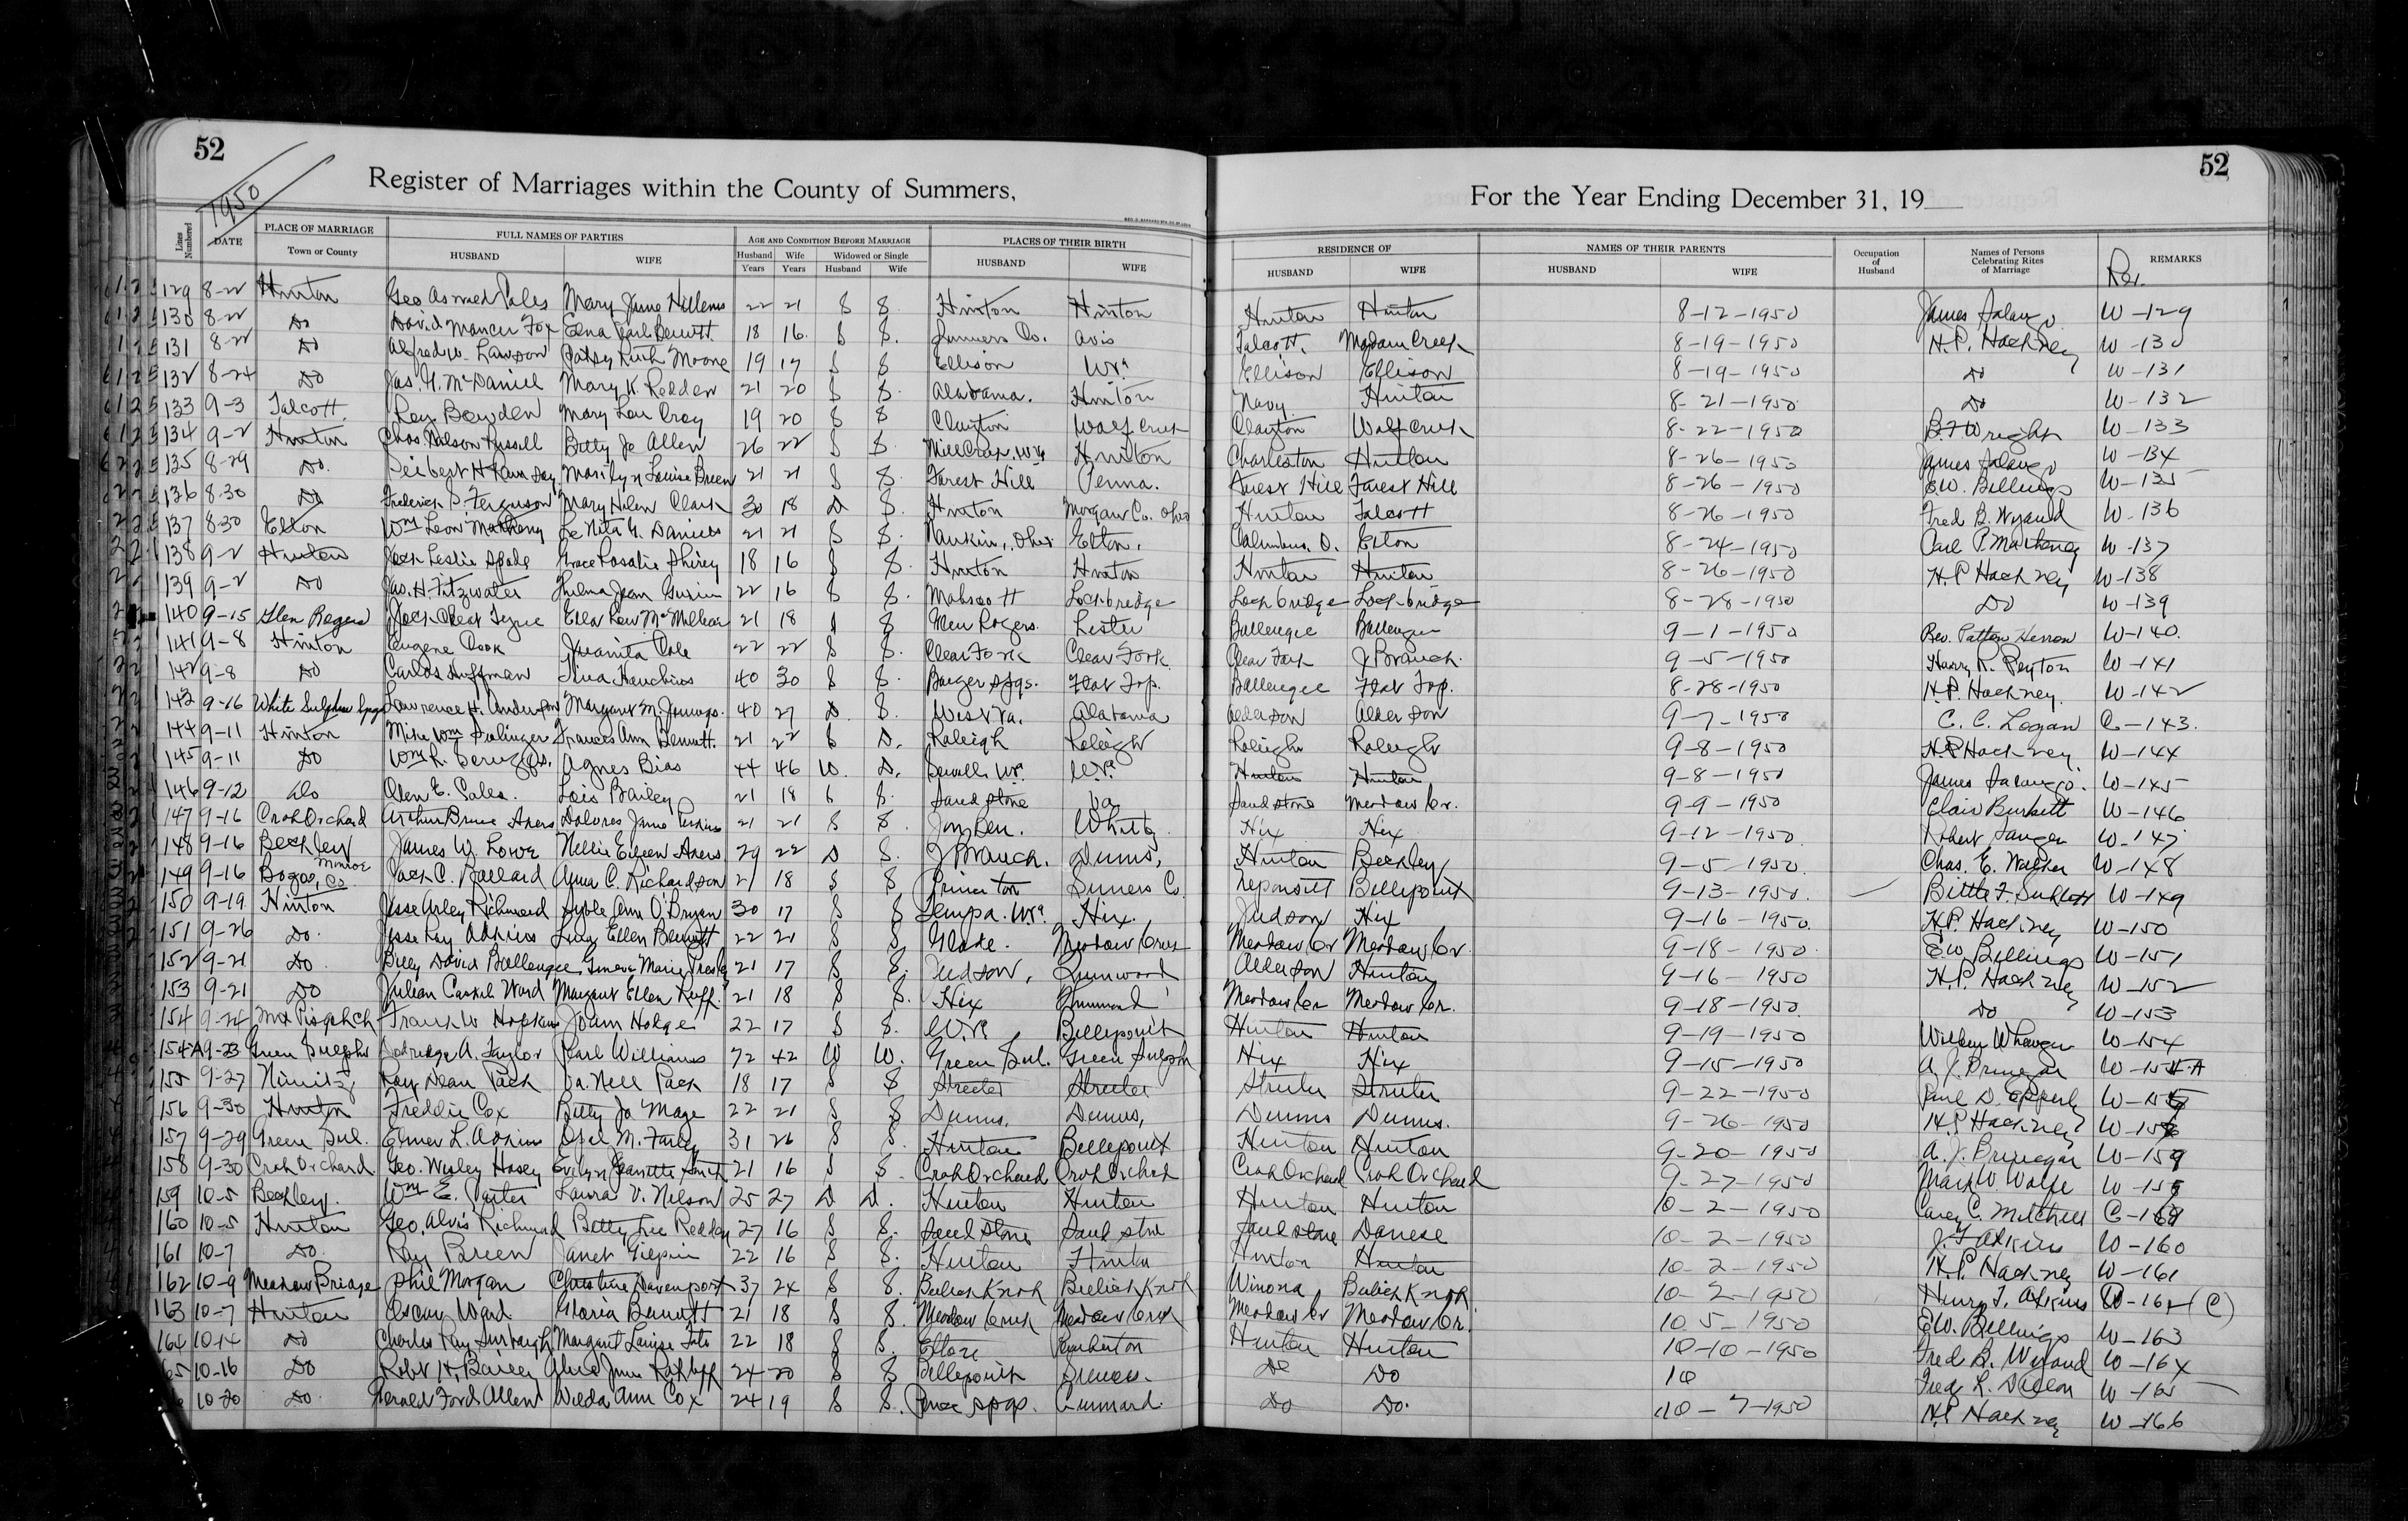 52
52
1950
Register of Marriages within the County of Summers,
For the Year Ending December 31, 19
Lines Numbered DATE PLACE OF MARRIAGE Town or County FULL NAMES OF PARTIES HUSBAND WIFE AGE AND CONDITION BEFORE MARRIAGE Husband Years Wife Years Widowed or Single Husband Wife PLACES OF THEIR BIRTH HUSBAND WIFE RESIDENCE OF HUSBAND WIFE NAMES OF THEIR PARENTS HUSBAND WIFE Occupation of Husband Names of Persons Celebrating Rites of Marriage REMARKS
129 8-22 Hinton Mary Jane 22 21 S S. Hinton Hinton Hinton Hinton 8-12-1950 James W-129
130 8-22 Do David Fox Edna Pearl 18 16 S S. Summers Co. Avis Talcott. Madam Creek 8-19-1950 H.P. Hackney W-130
131 8-22 Do Alfred W. Lawson Patsy Ruth Moore 19 17 S S Ellison W.Va Ellison Ellison 8-19-1950 Do W-131
132 8-24 Do Jas. H. McDaniel Mary K. Redden 21 20 S S. Alabama. Hinton Navy Hinton 8-21-1950 Do W-132
133 9-3 Talcott. Roy Bowden Mary Lou 19 20 S S Clayton Wolf Creek Clayton Wolf Creek 8-22-1950 Wright W-133
134 9-2 Hinton Chas. Nelson Russell Betty Jo Allen 26 22 S S. Hinton Charleston Hinton 8-26-1950 James W-134
135 8-29 Do. Marilyn Louise Breen 21 21 S S. Forest Hill Penna. Forest Hill Forest Hill 8-26-1950 E.W. Billings W-135
136 8-30 Do Frederick P. Ferguson Mary Helen Clark 30 18 D S. Hinton Morgan Co. Ohio Hinton Talcott 8-26-1950 Fred B. Wyand W-136
137 8-30 Elton Wm Leon Matheny Daniels 21 21 S S. Ohio Elton. Columbus, O. Elton 8-24-1950 Carl P. Matheny W-137
138 9-2 Hinton Jack Leslie Spade Grace Rosalie Shirey 18 16 S S. Hinton Hinton Hinton Hinton 8-26-1950 H.P. Hackney W-138
139 9-2 Do Jas. H. Fitzwater Thelma Jean 22 16 S S. Mabscott Lockbridge Lockbridge Lockbridge 8-28-1950 Do W-139
140 9-15 Glen Rogers Jack Ella Lou McMillion 21 18 S S Glen Rogers. Lester Ballengee Ballengee 9-1-1950 Rev. Patton Herron W-140.
141 9-8 Hinton Eugene Cook Juanita Cole 22 22 S S. Clear Fork Clear Fork. Clear Fork J Branch. 9-5-1950 Harry R. Peyton W-141
142 9-8 Do Carlos Huffman 40 30 S S. Barger Spgs. Flat Top. Ballengee Flat Top. 8-28-1950 H.P. Hackney. W-142
143 9-16 White Sulphur Spgs Lawrence H. Anderson Margaret M. Jennings. 40 27 D. S. West Va. Alabama Alderson Alderson 9-7-1950 C. C. Logan C-143.
144 9-11 Hinton Mike Wm Frances Ann Bennett. 21 22 S D. Raleigh Raleigh Raleigh Raleigh 9-8-1950 H.P. Hackney W-144
145 9-11 Do Wm R. Scruggs. Agnes Bias 44 46 W. D. W.Va W.Va Hinton Hinton 9-8-1950 James W-145
146 9-12 Do Olen E. Sales. Lois Bailey 21 18 S S. Sandstone Va Sandstone Meadow Cr. 9-9-1950 Clair Burkett W-146
147 9-16 Crab Orchard Arthur Bruce Akers Dolores Jane Perkins 21 21 S S. Whitby Hix Hix 9-12-1950 Robert Sanger W-147
148 9-16 Beckley James W. Lowe Nellie Eileen Akers 29 22 D S. J Branch. Dunns, Hinton Beckley 9-5-1950. Chas. E. Walker W-148
149 9-16 Bozoo, Monroe Co. Jack C. Ballard Anna C. Richardson 21 18 S S Princeton Summers Co. Bellepoint 9-13-1950. W-149
150 9-19 Hinton Jesse Arley Richmond Ann O'Bryan 30 17 S S Lempa. W.Va. Hix. Judson Hix 9-16-1950. H.P. Hackney W-150
151 9-26 Do. Jesse Ray Adkins Lucy Ellen Bennett 22 21 S S Glade. Meadow Creek Meadow Cr Meadow Cr. 9-18-1950. E.W. Billings W-151
152 9-21 Do Billy David Ballengee Geneva Marie 21 17 S S. Judson, Alderson Hinton 9-16-1950 H.P. Hackney W-152
153 9-21 Do Julian Ward Margaret Ellen Ruff. 21 18 S S. Hix Meadow Cr Meadow Cr. 9-18-1950. Do W-153
154 9-24 Mt Pisgah Ch Frank W Hopkins Joann Hodge 22 17 S S. W.Va Bellepoint Hinton Hinton 9-19-1950 W-154
154A 9-23 Green Sulphur A. Taylor Pearl Williams 72 42 W W. Green Sul. Green Sulphur Hix Hix 9-15-1950 W-154-A
155 9-27 Nimitz Ray Dean Pack Nell Pack 18 17 S S Streeter Streeter Streeter Streeter 9-22-1950 Paul D. Epperly
156 9-30 Hinton Freddie Cox Betty Jo 22 21 S S Dunns. Dunns, Dunns Dunns. 9-26-1950 H.P. Hackney
157 9-29 Green Sul. Elmer L. Adkins Opal M. Farley 31 26 S S. Hinton Bellepoint Hinton Hinton 9-20-1950
158 9-30 Crab Orchard Geo. Wesley Hosey Evelyn Jeanette Smith 21 16 S S. Crab Orchard Crab Orchard Crab Orchard Crab Orchard 9-27-1950 Mark W. Wolfe
159 10-5 Beckley. Wm E. Laura V. Nelson 25 27 D D. Hinton Hinton Hinton Hinton 10-2-1950 Carey C. Mitchell
160 10-5 Hinton Geo. Alvis Richmond Betty Lee Redden 27 16 S S. Sandstone Sandstone Sandstone Danese 10-2-1950 J.F. Adkins W-160
161 10-7 Do Ray Breen Janet Gilpin 22 16 S S. Hinton Hinton Hinton Hinton 10-2-1950 H.P. Hackney W-161
162 10-9 Meadow Bridge Phil Morgan Christine Davenport 37 24 S S. Winona 10-2-1950 Henry F. Adkins -162 (C)
163 10-7 Hinton Oscar Ward Gloria Bennett 21 18 S S. Meadow Creek Meadow Creek Meadow Cr Meadow Cr. 10-5-1950 E.W. Billings W-163
164 10-14 Do Charles Ray Margaret Louise 22 18 S S. Pemberton Hinton Hinton 10-10-1950 Fred B. Wyand W-164
65 10-16 Do Robt H. Bailey June 24 20 S S Bellepoint Do Do 10 Fred L. Dillon W-165
10-20 Do. Gerald Ford Allen Wilda Ann Cox 24 19 S S. Pence Spgs. Do Do. 10-7-1950 H.P. Hackney W-166